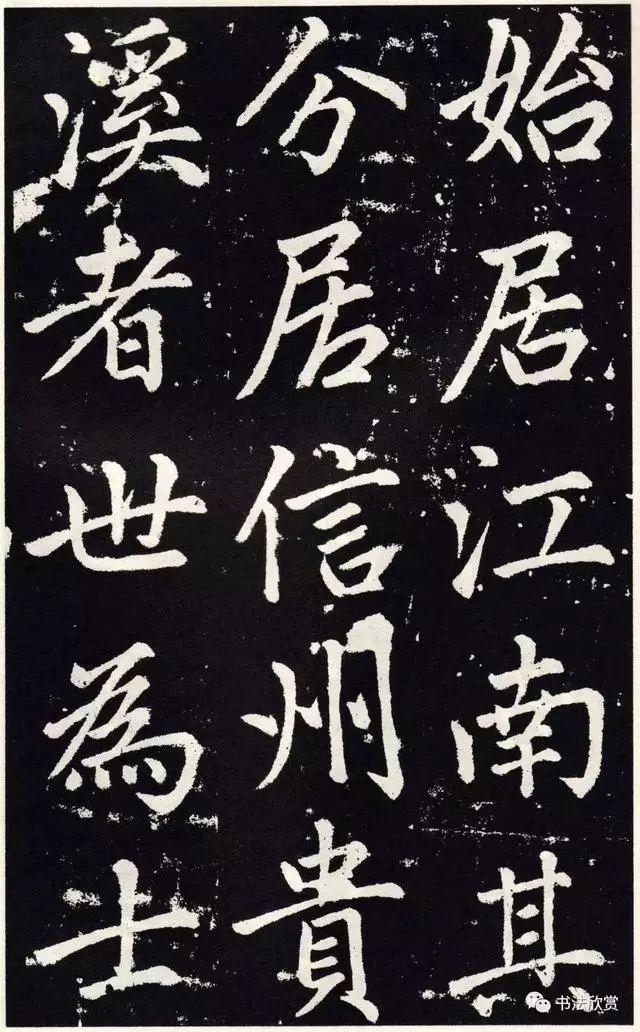 始居江南其
分居信州貴
溪者世為士
书法欣赏